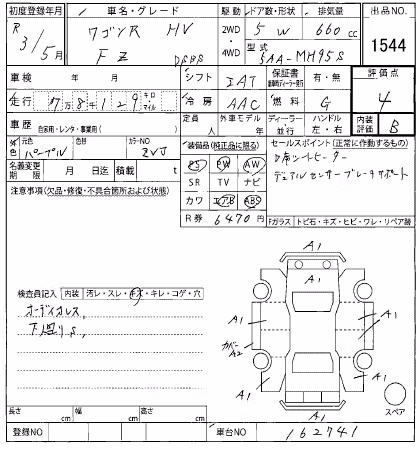 初度登録年月 車名・グレード 駆動 ドア数・形状 排気量 出品NO.
R 3/5月 ワゴンR HV 2WD・4WD 5 W 660 cc 1544
FZ DSBS 型式 5AA-MH95S
車検 年 月 シフト IAT 保証書 有・無 評価点
走行 7万8千129 キロ マイル 冷房 AAC 燃料 G 4
車歴 自家用・レンタ・事業用( ) 定員 人 外車モデル 年 ディーラー 並行 ハンドル 左・右 内装評価 B
色 元色 パープル 色替 カラーNO ZVJ
装備品(純正品に限る) セールスポイント(正常に作動するもの)
名義変更期限 月 日迄 積載 t PS PW AW
SR TV ナビ
カワ エアB ABS
デュアルセンサーブレーキサポート
注意事項(欠品・修復・不具合箇所および状態)
R券 6470円 Fガラス トビ石・キズ・ヒビ・ワレ・リペア跡
検査員記入 内装 汚レ・スレ・キズ・キレ・コゲ・穴
オーディオレス
下廻りS
A1
A1
A1
A1
A1
カバーA2
A1
A1
A1
スペア
長さ cm 幅 cm 高さ cm
登録NO 車台NO 162741